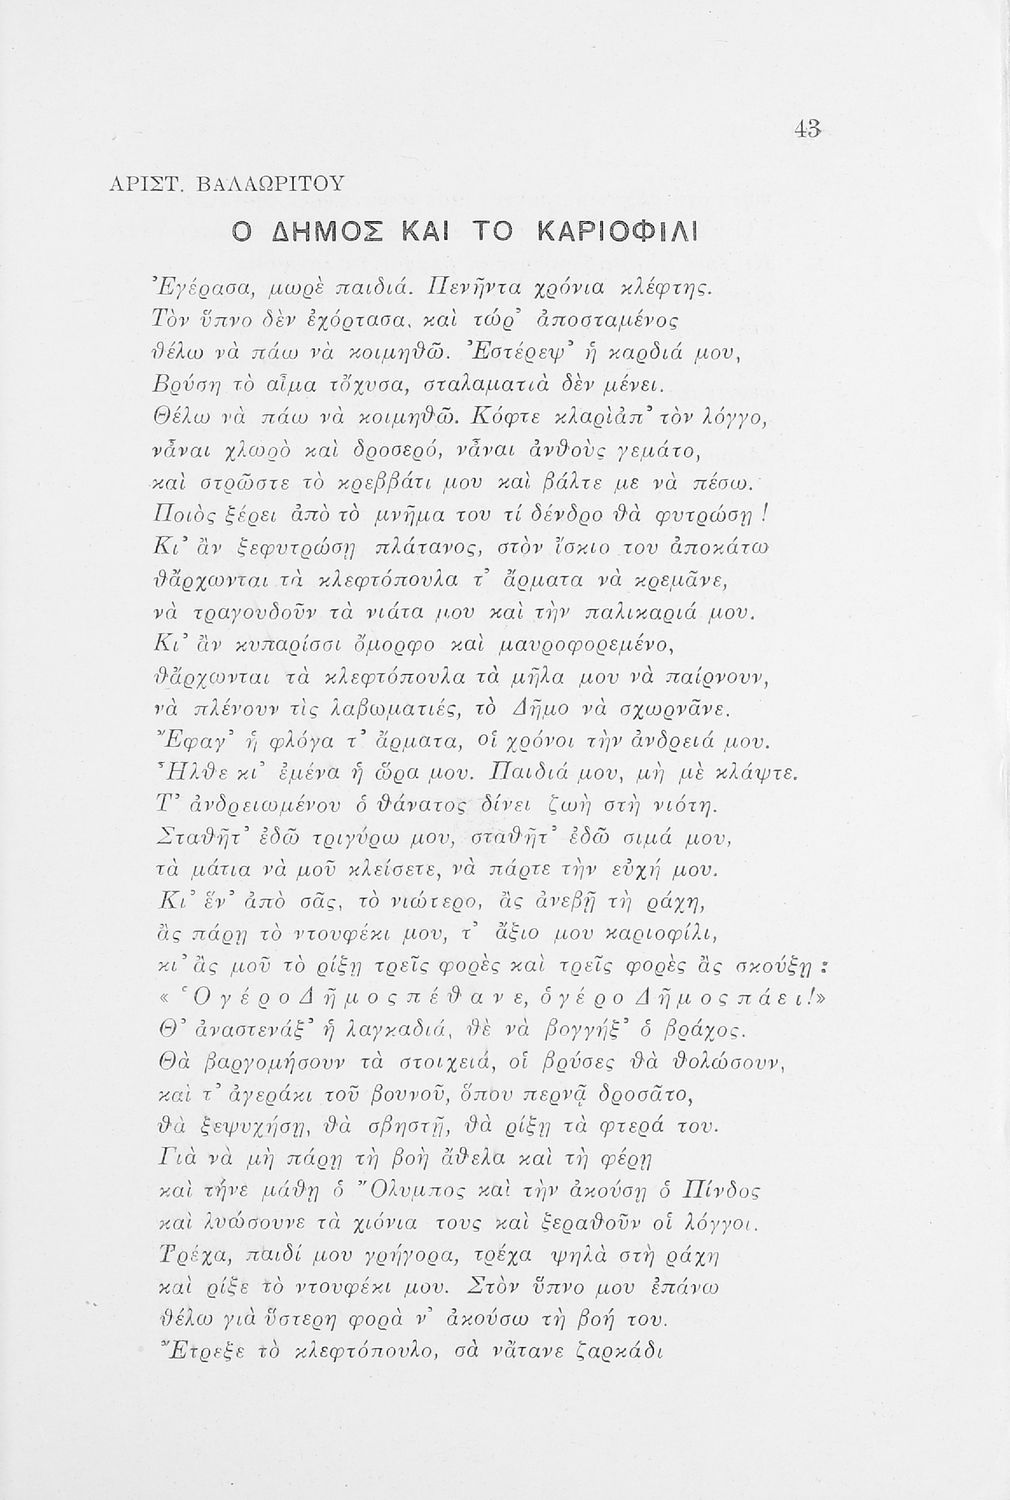 43
ΑΡΙΣΤ. ΒΑΛΑΩΡΙΤΟΥ
Ο ΔΗΜΟΣ ΚΑΙ ΤΟ ΚΑΡΙΟΦΙΛΙ
Ἐγέρασα, μωρὲ παιδιά. Πενῆντα χρόνια κλέφτης.
Τὸν ὕπνο δὲν ἐχόρτασα, καὶ τώρ᾿ ἀποσταμένος
θέλω νὰ πάω νὰ κοιμηθῶ. Ἐστέρεψ᾿ ἡ καρδιά μου,
Βρύση τὸ αἷμα τὄχυσα, σταλαματιὰ δὲν μένει.
Θέλω νὰ πάω νὰ κοιμηθῶ. Κόφτε κλαρὶἀπ᾿ τὸν λόγγο,
νἆναι χλωρὸ καὶ δροσερό, νἆναι ἀνθοὺς γεμάτο,
καὶ στρῶστε τὸ κρεββάτι μου καὶ βάλτε με νὰ πέσω.
Ποιὸς ξέρει ἀπὸ τὸ μνῆμα του τί δένδρο θὰ φυτρώσῃ !
Κι᾿ ἂν ξεφυτρώσῃ πλάτανος, στὸν ἴσκιο του ἀποκάτω
θἄρχωνται τὰ κλεφτόπουλα τ᾿ ἄρματα νὰ κρεμᾶνε,
νὰ τραγουδοῦν τὰ νιάτα μου καὶ τὴν παλικαριά μου.
Κι᾿ ἂν κυπαρίσσι ὄμορφο καὶ μαυροφορεμένο,
θἄρχωνται τὰ κλεφτόπουλα τὰ μῆλα μου νὰ παίρνουν,
νὰ πλένουν τὶς λαβωματιές, τὸ Δῆμο νὰ σχωρνᾶνε.
Ἔφαγ᾿ ἡ φλόγα τ᾿ ἄρματα, οἱ χρόνοι τὴν ἀνδρειά μου.
Ἦλθε κι᾿ ἐμένα ἡ ὥρα μου. Παιδιά μου, μὴ μὲ κλάψτε.
Τ᾿ ἀνδρειωμένου ὁ θάνατος δίνει ζωὴ στὴ νιότη.
Σταθῆτ᾿ ἐδῶ τριγύρω μου, σταθῆτ᾿ ἐδῶ σιμά μου,
τὰ μάτια νὰ μοῦ κλείσετε, νὰ πάρτε τὴν εὐχή μου.
Κι᾿ ἕν᾿ ἀπὸ σᾶς, τὸ νιώτερο, ἂς ἀνεβῇ τὴ ράχη,
ἂς πάρῃ τὸ ντουφέκι μου, τ᾿ ἄξιο μου καριοφίλι,
κι᾿ ἂς μοῦ τὸ ρίξῃ τρεῖς φορὲς καὶ τρεῖς φορὲς ἂς σκούξῃ :
« Ὁ γέρο Δῆμος πέθανε, ὁ γέρο Δῆμος πάει!»
Θ᾿ ἀναστενάξ᾿ ἡ λαγκαδιά, θὲ νὰ βογγήξ᾿ ὁ βράχος.
Θὰ βαργομήσουν τὰ στοιχειά, οἱ βρύσες θὰ θολώσουν,
καὶ τ᾿ ἀγεράκι τοῦ βουνοῦ, ὅπου περνᾷ δροσᾶτο,
θὰ ξεψυχήσῃ, θὰ σβηστῇ, θὰ ρίξῃ τὰ φτερά του.
Γιὰ νὰ μὴ πάρῃ τὴ βοὴ ἄθελα καὶ τὴ φέρῃ
καὶ τήνε μάθῃ ὁ Ὄλυμπος καὶ τὴν ἀκούσῃ ὁ Πίνδος
καὶ λυώσουνε τὰ χιόνια τους καὶ ξεραθοῦν οἱ λόγγοι.
Τρέχα, παιδί μου γρήγορα, τρέχα ψηλὰ στὴ ράχη
καὶ ρίξε τὸ ντουφέκι μου. Στὸν ὕπνο μου ἐπάνω
θέλω γιὰ ὕστερη φορὰ ν᾿ ἀκούσω τὴ βοή του.
Ἔτρεξε τὸ κλεφτόπουλο, σὰ νἄτανε ζαρκάδι